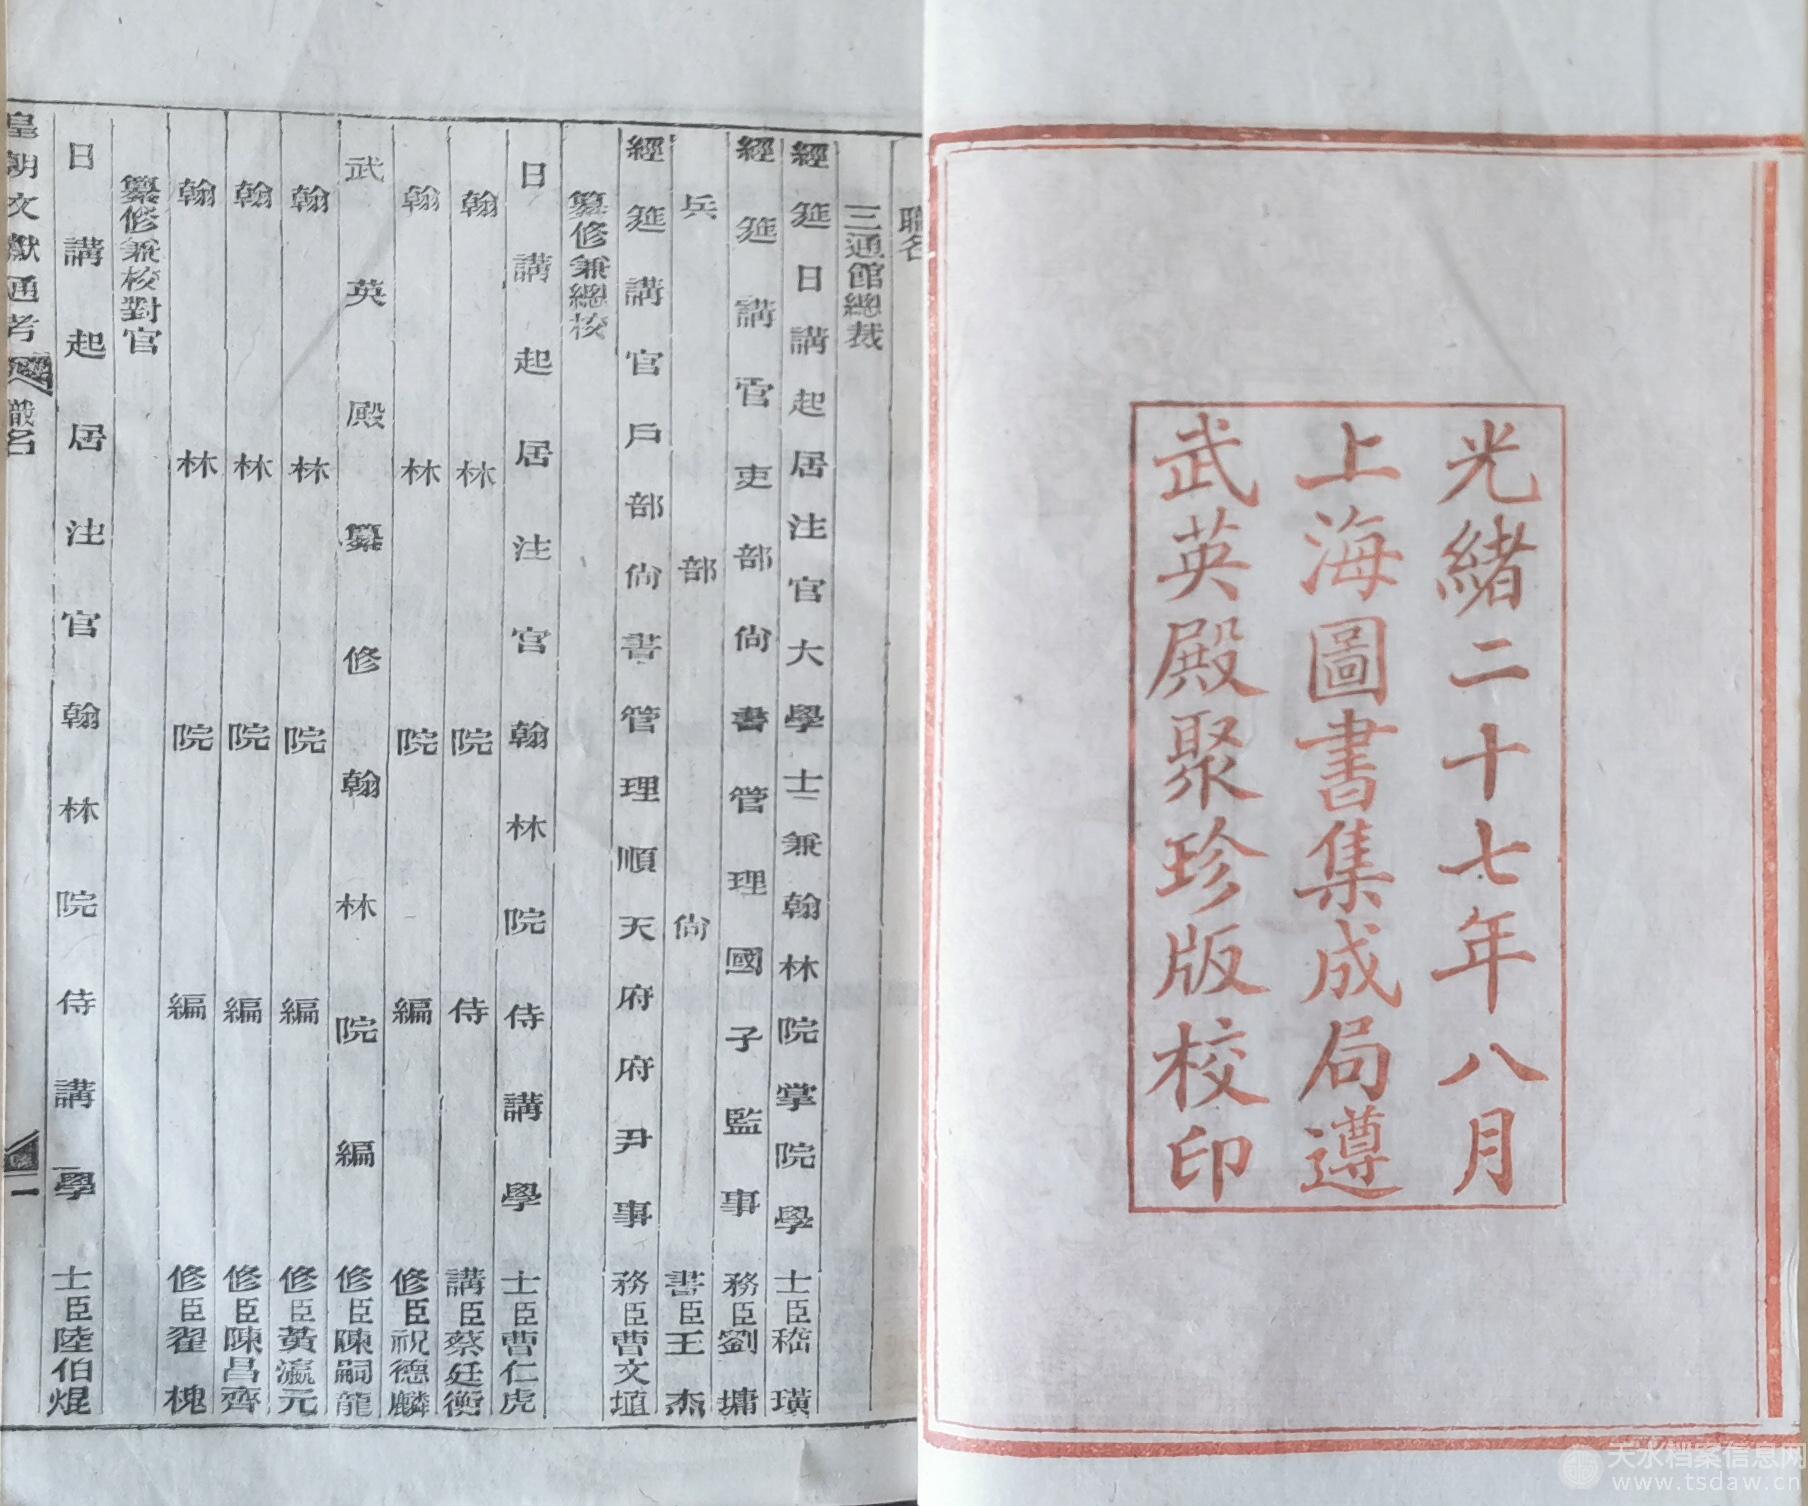 光緒二十七年八月
上海圖書集成局遵
武英殿聚珍版校印
職名
三通館總裁
經筵日講起居注官大學士兼翰林院掌院學士臣嵇璜
經筵講官吏部尚書管理國子監事務臣劉墉
兵部尚書臣王杰
經筵講官戶部尚書管理順天府府尹事務臣曹文埴
纂修兼總校
日講起居注官翰林院侍講學士臣曹仁虎
翰林院侍講臣蔡廷衡
翰林院編修臣祝德麟
武英殿纂修翰林院編修臣陳嗣龍
翰林院編修臣黃瀛元
翰林院編修臣陳昌齊
翰林院編修臣翟槐
纂修兼校對官
日講起居注官翰林院侍講學士臣陸伯焜
皇朝文獻通考 職名 一
天水档案信息网
www.tsdaw.cn